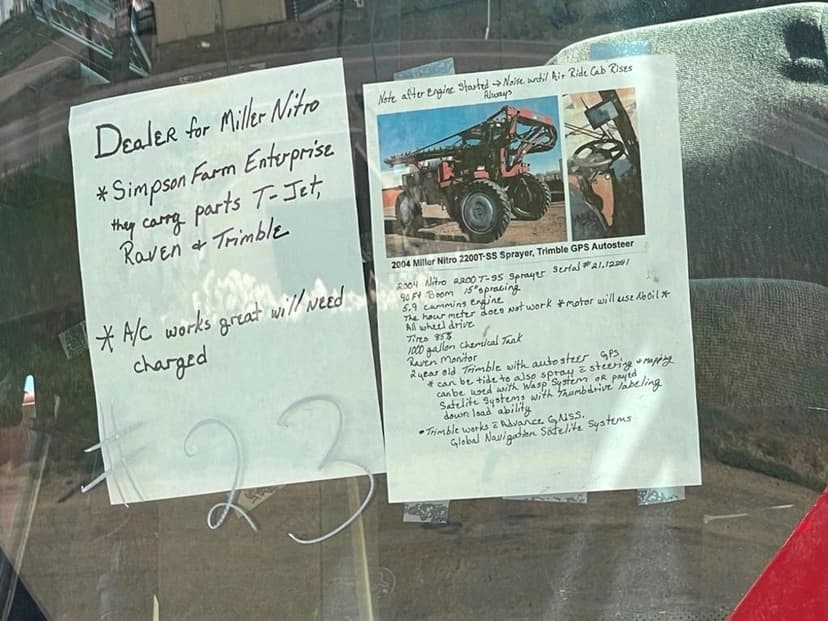 Dealer for Miller Nitro
* Simpson Farm Enterprise
they carry parts T-Jet,
Raven & Trimble
* A/C works great will need
charged
#23
Note after Engine Started → Noise until Air Ride Cab Rises
Always
2004 Miller Nitro 2200T-SS Sprayer, Trimble GPS Autosteer
2004 Nitro 2200T-SS Sprayer Serial #
90 Ft Boom 15" spracing
5.9 cummins engine
The hour meter does not work * motor will use No oil *
All wheel drive
Tires 85%
1000 gallon Chemical Tank
Raven Monitor
2 year old Trimble with autosteer GPS.
* can be tide to also spray c̄ steering & mapping
can be used with Wasp System or payed
Satelite Systems with Thumbdrive labeling
down load ability
• Trimble works c̄ Advance GNSS.
Global Navigation Satelite Systems